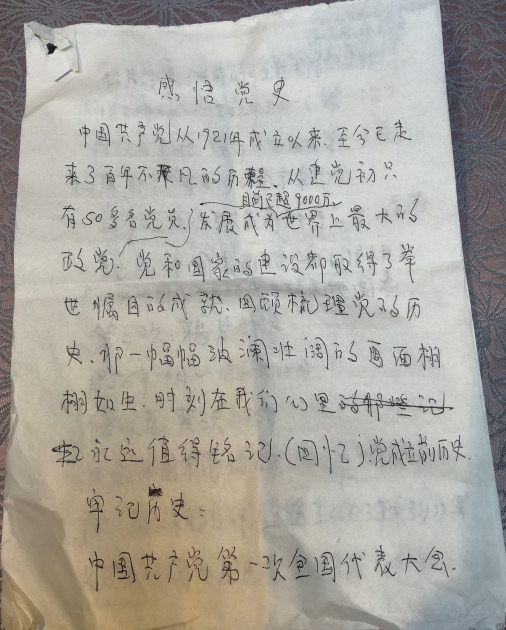 感悟党史
中国共产党从1921年成立以来,至今已走
来了百年不凡的历程,从建党初只
目前已超9000万
有50多名党员,发展成为世界上最大的
政党,党和国家的建设都取得了举
世瞩目的成就,回顾梳理党的历
史,那一幅幅波澜壮阔的画面栩
栩如生,时刻在我们心里的那些记
忆永远值得铭记,(回忆)党成立前历史,
牢记历史:
中国共产党第一次全国代表大会.